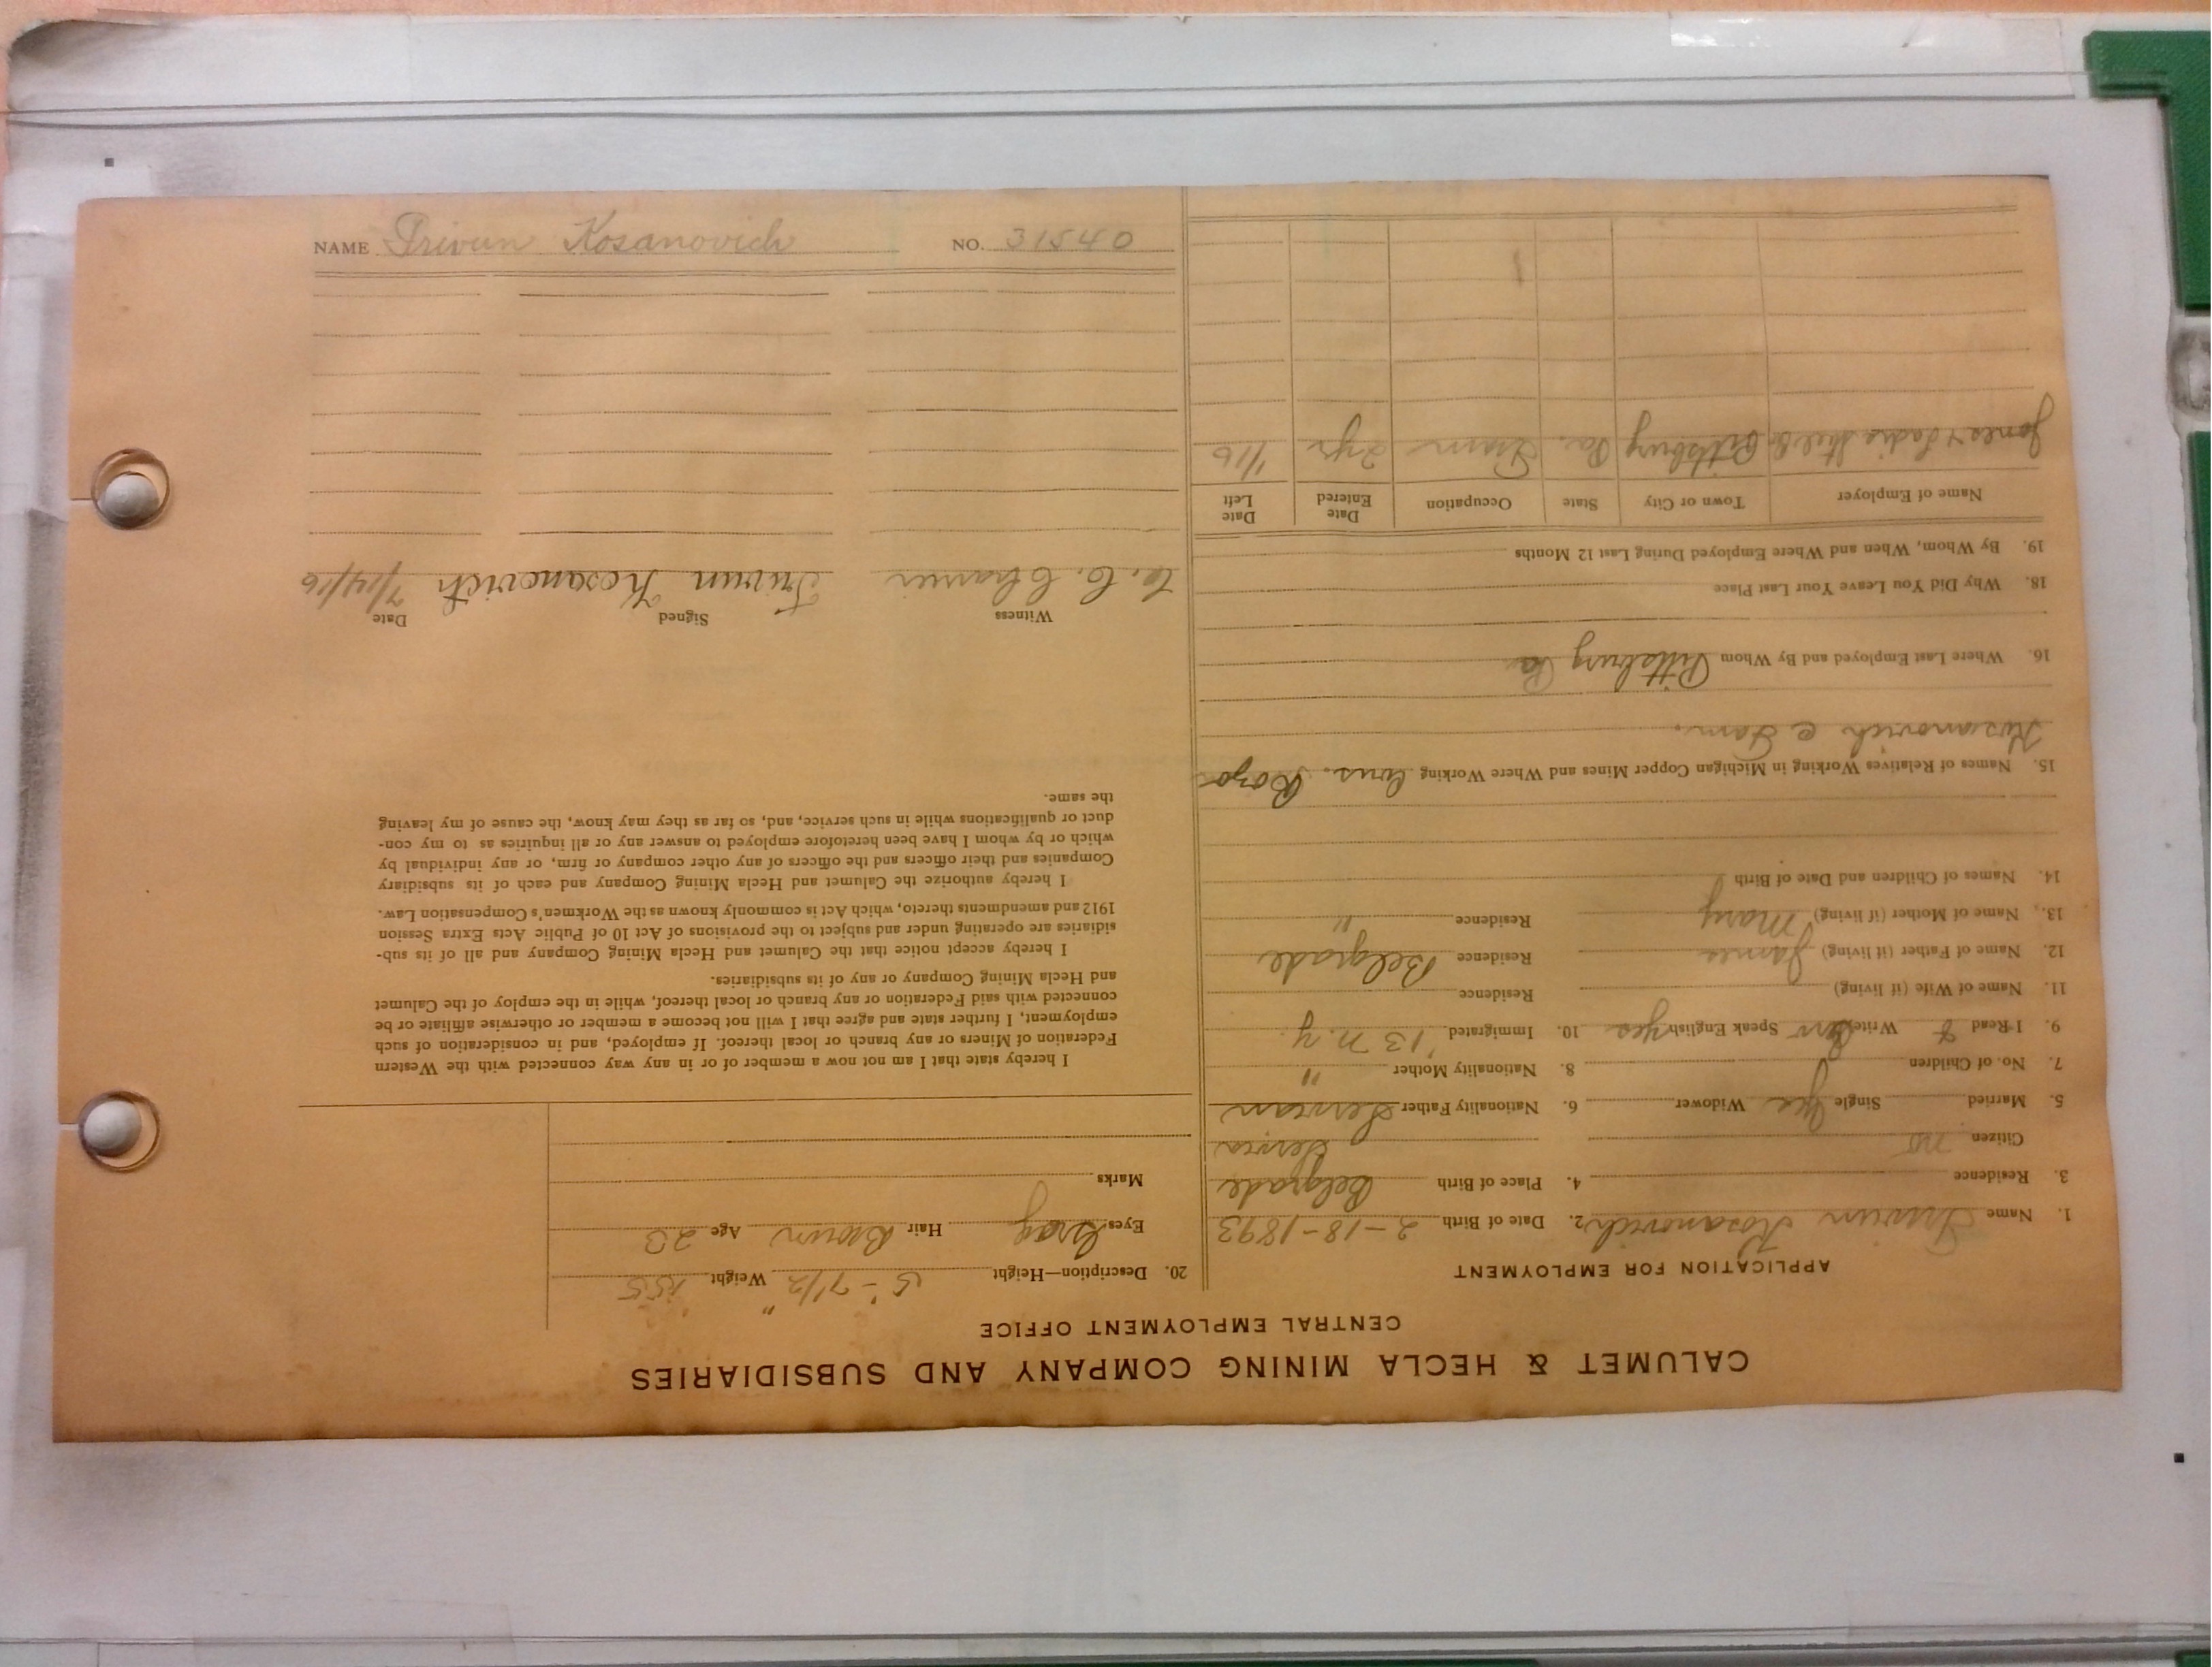 CALUMET & HECLA MINING COMPANY AND SUBSIDIARIES
CENTRAL EMPLOYMENT OFFICE
APPLICATION FOR EMPLOYMENT
1. Name Trivun Kosanovich 2. Date of Birth 2-18-1893
3. Residence 4. Place of Birth Belgrade
Citizen no Servia
5. Married Single Yes Widower 6. Nationality Father Servian
7. No. of Children 8. Nationality Mother "
9. I Read & Write Serv Speak English yes 10. Immigrated '13 N.Y.
11. Name of Wife (if living) Residence
12. Name of Father (if living) James Residence Belgrade
13. Name of Mother (if living) Mary Residence "
14. Names of Children and Date of Birth
15. Names of Relatives Working in Michigan Copper Mines and Where Working Cous. Bozo
Kosanovich @ Tam.
16. Where Last Employed and By Whom Pittsburg Pa
18. Why Did You Leave Your Last Place
19. By Whom, When and Where Employed During Last 12 Months
Name of Employer Town or City State Occupation Date Entered Date Left
Jones & Steel Co Pittsburg Pa. Tram 2 yr 1/16
20. Description—Height 5'-7 1/2" Weight 155
Eyes Gray Hair Brown Age 23
Marks
I hereby state that I am not now a member of or in any way connected with the Western
Federation of Miners or any branch or local thereof. If employed, and in consideration of such
employment, I further state and agree that I will not become a member or otherwise affiliate or be
connected with said Federation or any branch or local thereof, while in the employ of the Calumet
and Hecla Mining Company or any of its subsidiaries.
I hereby accept notice that the Calumet and Hecla Mining Company and all of its sub-
sidiaries are operating under and subject to the provisions of Act 10 of Public Acts Extra Session
1912 and amendments thereto, which Act is commonly known as the Workmen's Compensation Law.
I hereby authorize the Calumet and Hecla Mining Company and each of its subsidiary
Companies and their officers and the officers of any other company or firm, or any individual by
which or by whom I have been heretofore employed to answer any or all inquiries as to my con-
duct or qualifications while in such service, and, so far as they may know, the cause of my leaving
the same.
Witness Signed Date
Trivun Kosanovich 7/14/16
NAME Trivun Kosanovich NO. 31540